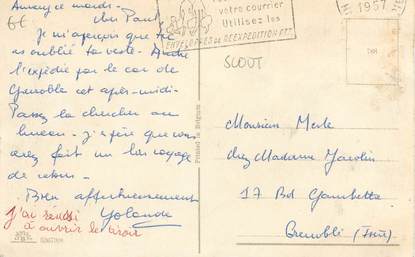 Annecy ce mardi -
66
Cher Paul,
Je m'aperçois que tu
as oublié ta veste. Andre
l'expédie par le car de
Grenoble cet après-midi -
Passez la chercher au
bureau - j'espère que vous
avez fait un bon voyage
de retour -
Bien affectueusement
Yolande
J'ai réussi
à ouvrir le tiroir
votre courrier
Utilisez les
ENVELOPPES DE REEXPEDITION PTT
1957
SCOUT
Printed in Belgium
Monsieur Merle
chez Madame
17 Bd Gambetta
Grenoble (Isère)